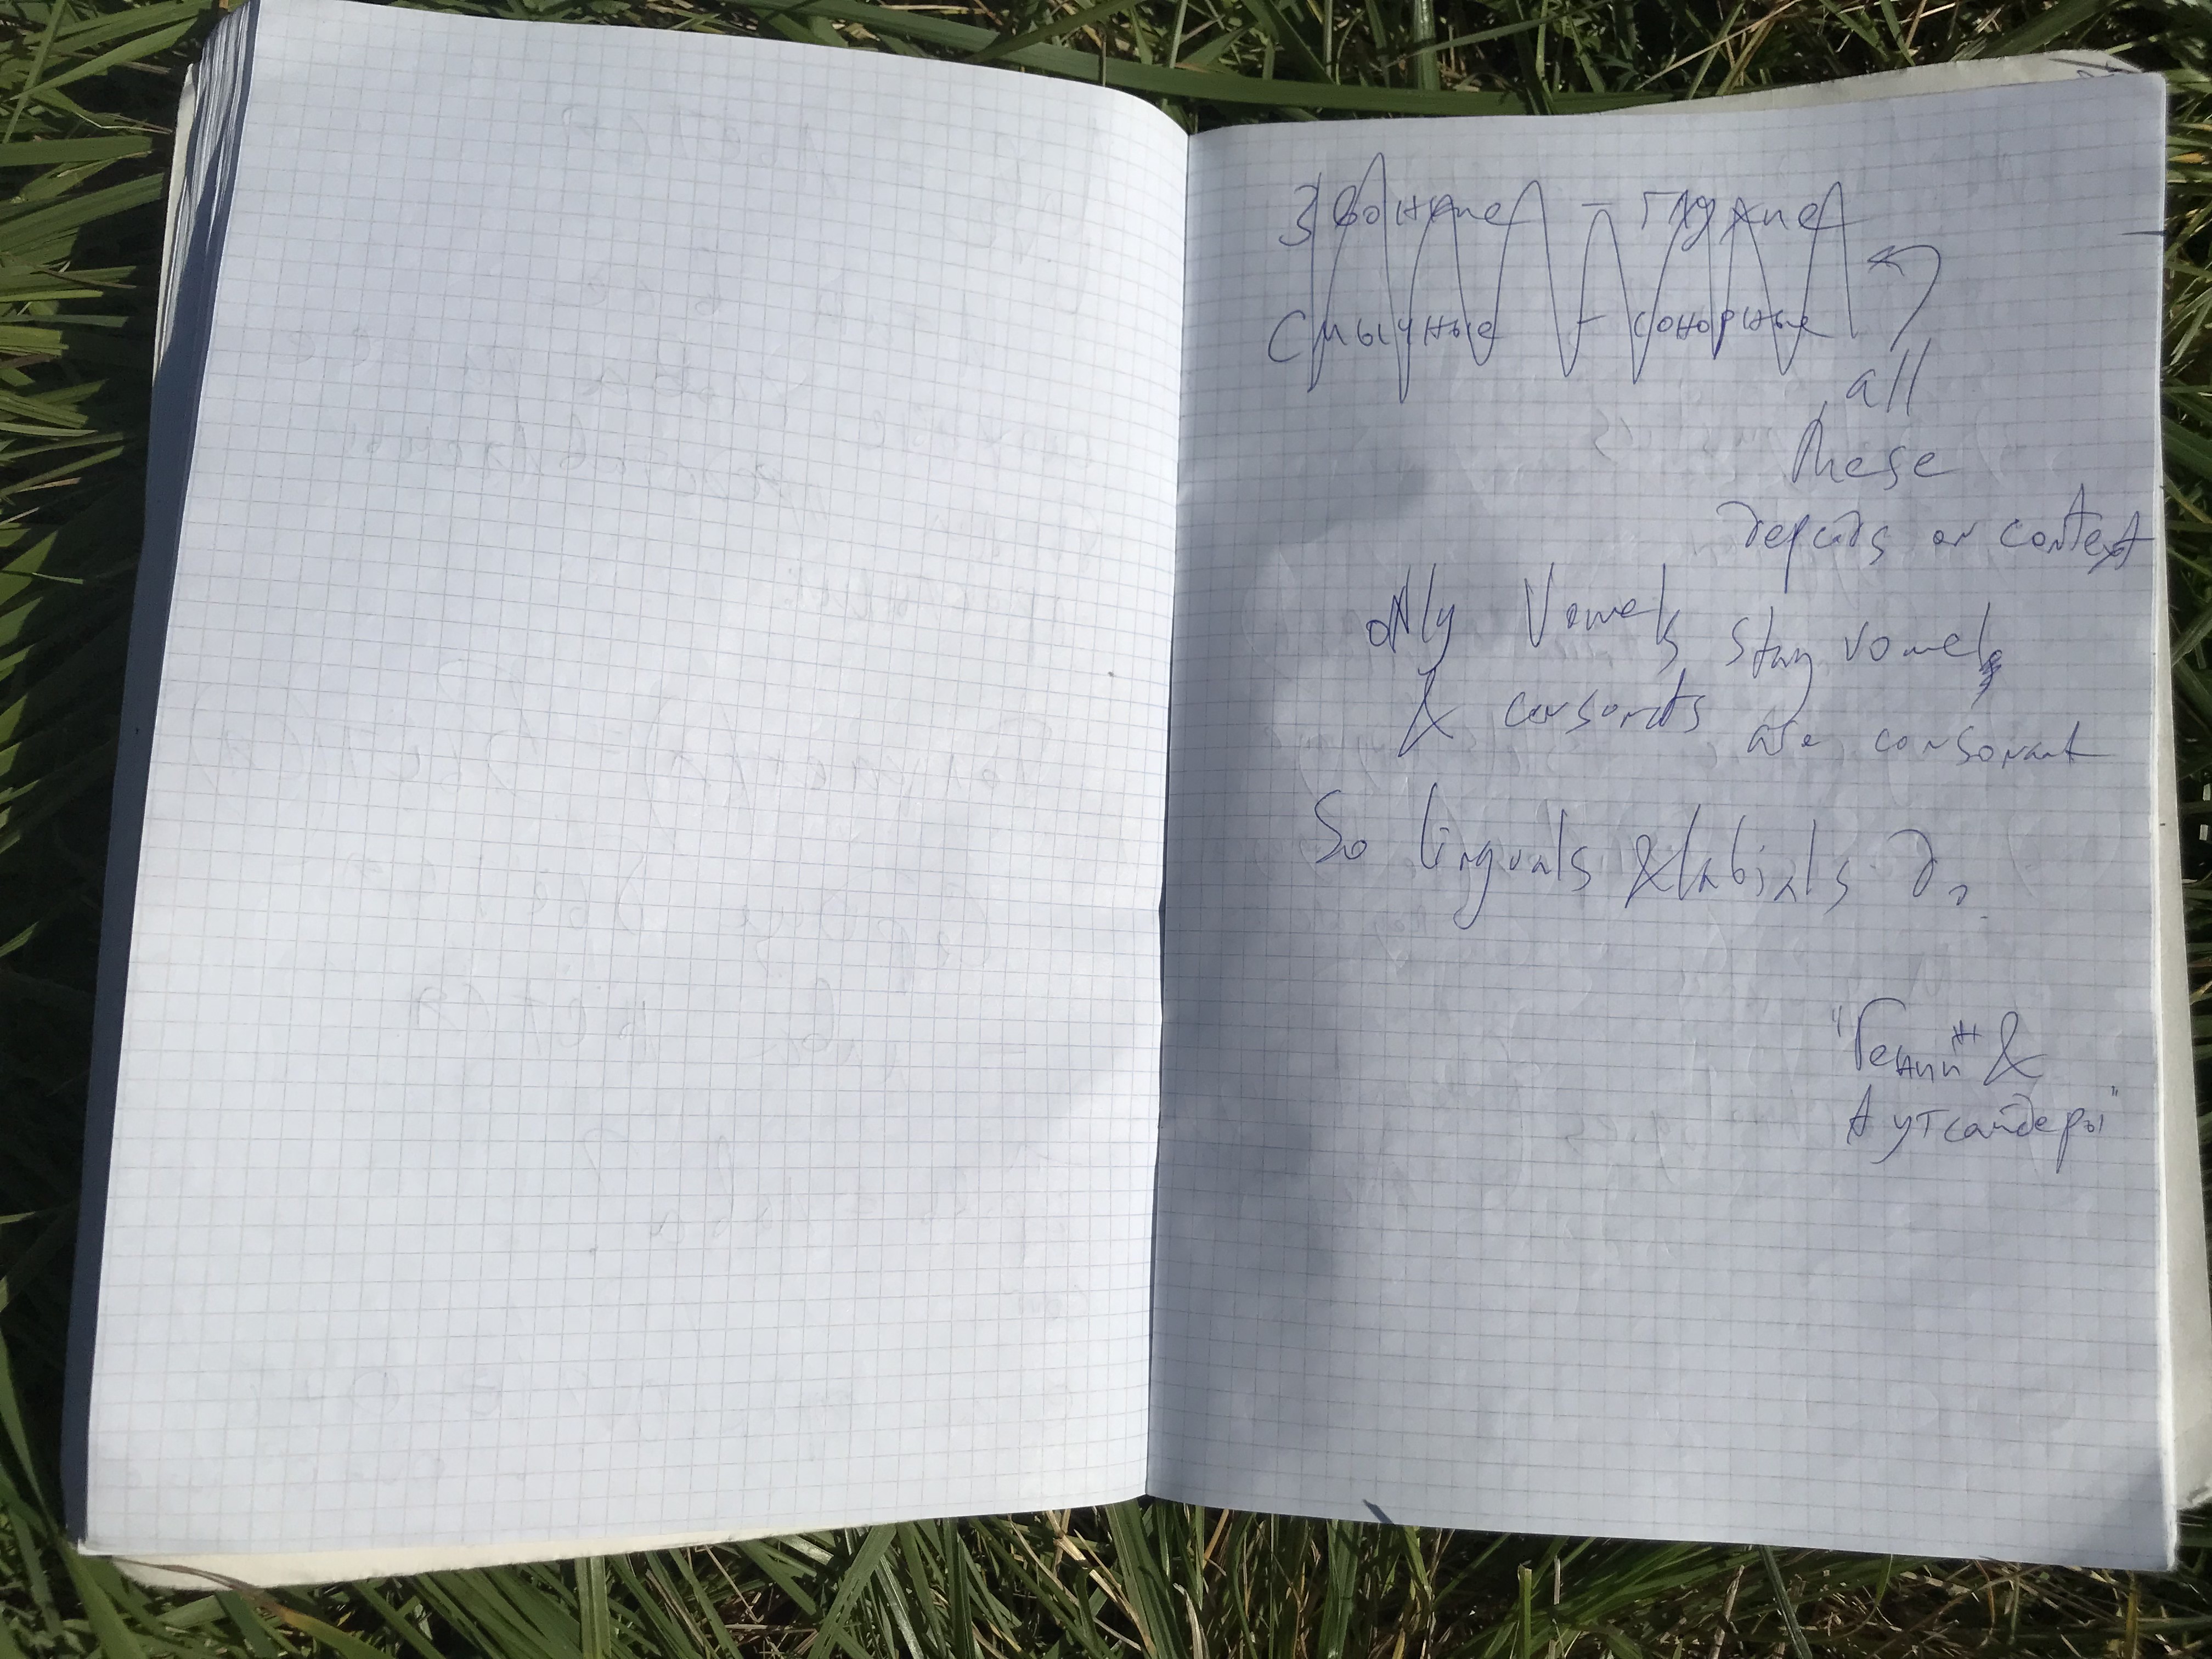 Звонкие – глухие
Смычные – сонорные
all
these
depends on context
only Vowels stay vowels
& consonants are consonant
So linguals & labials?
"Гении &
Аутсайдеры"